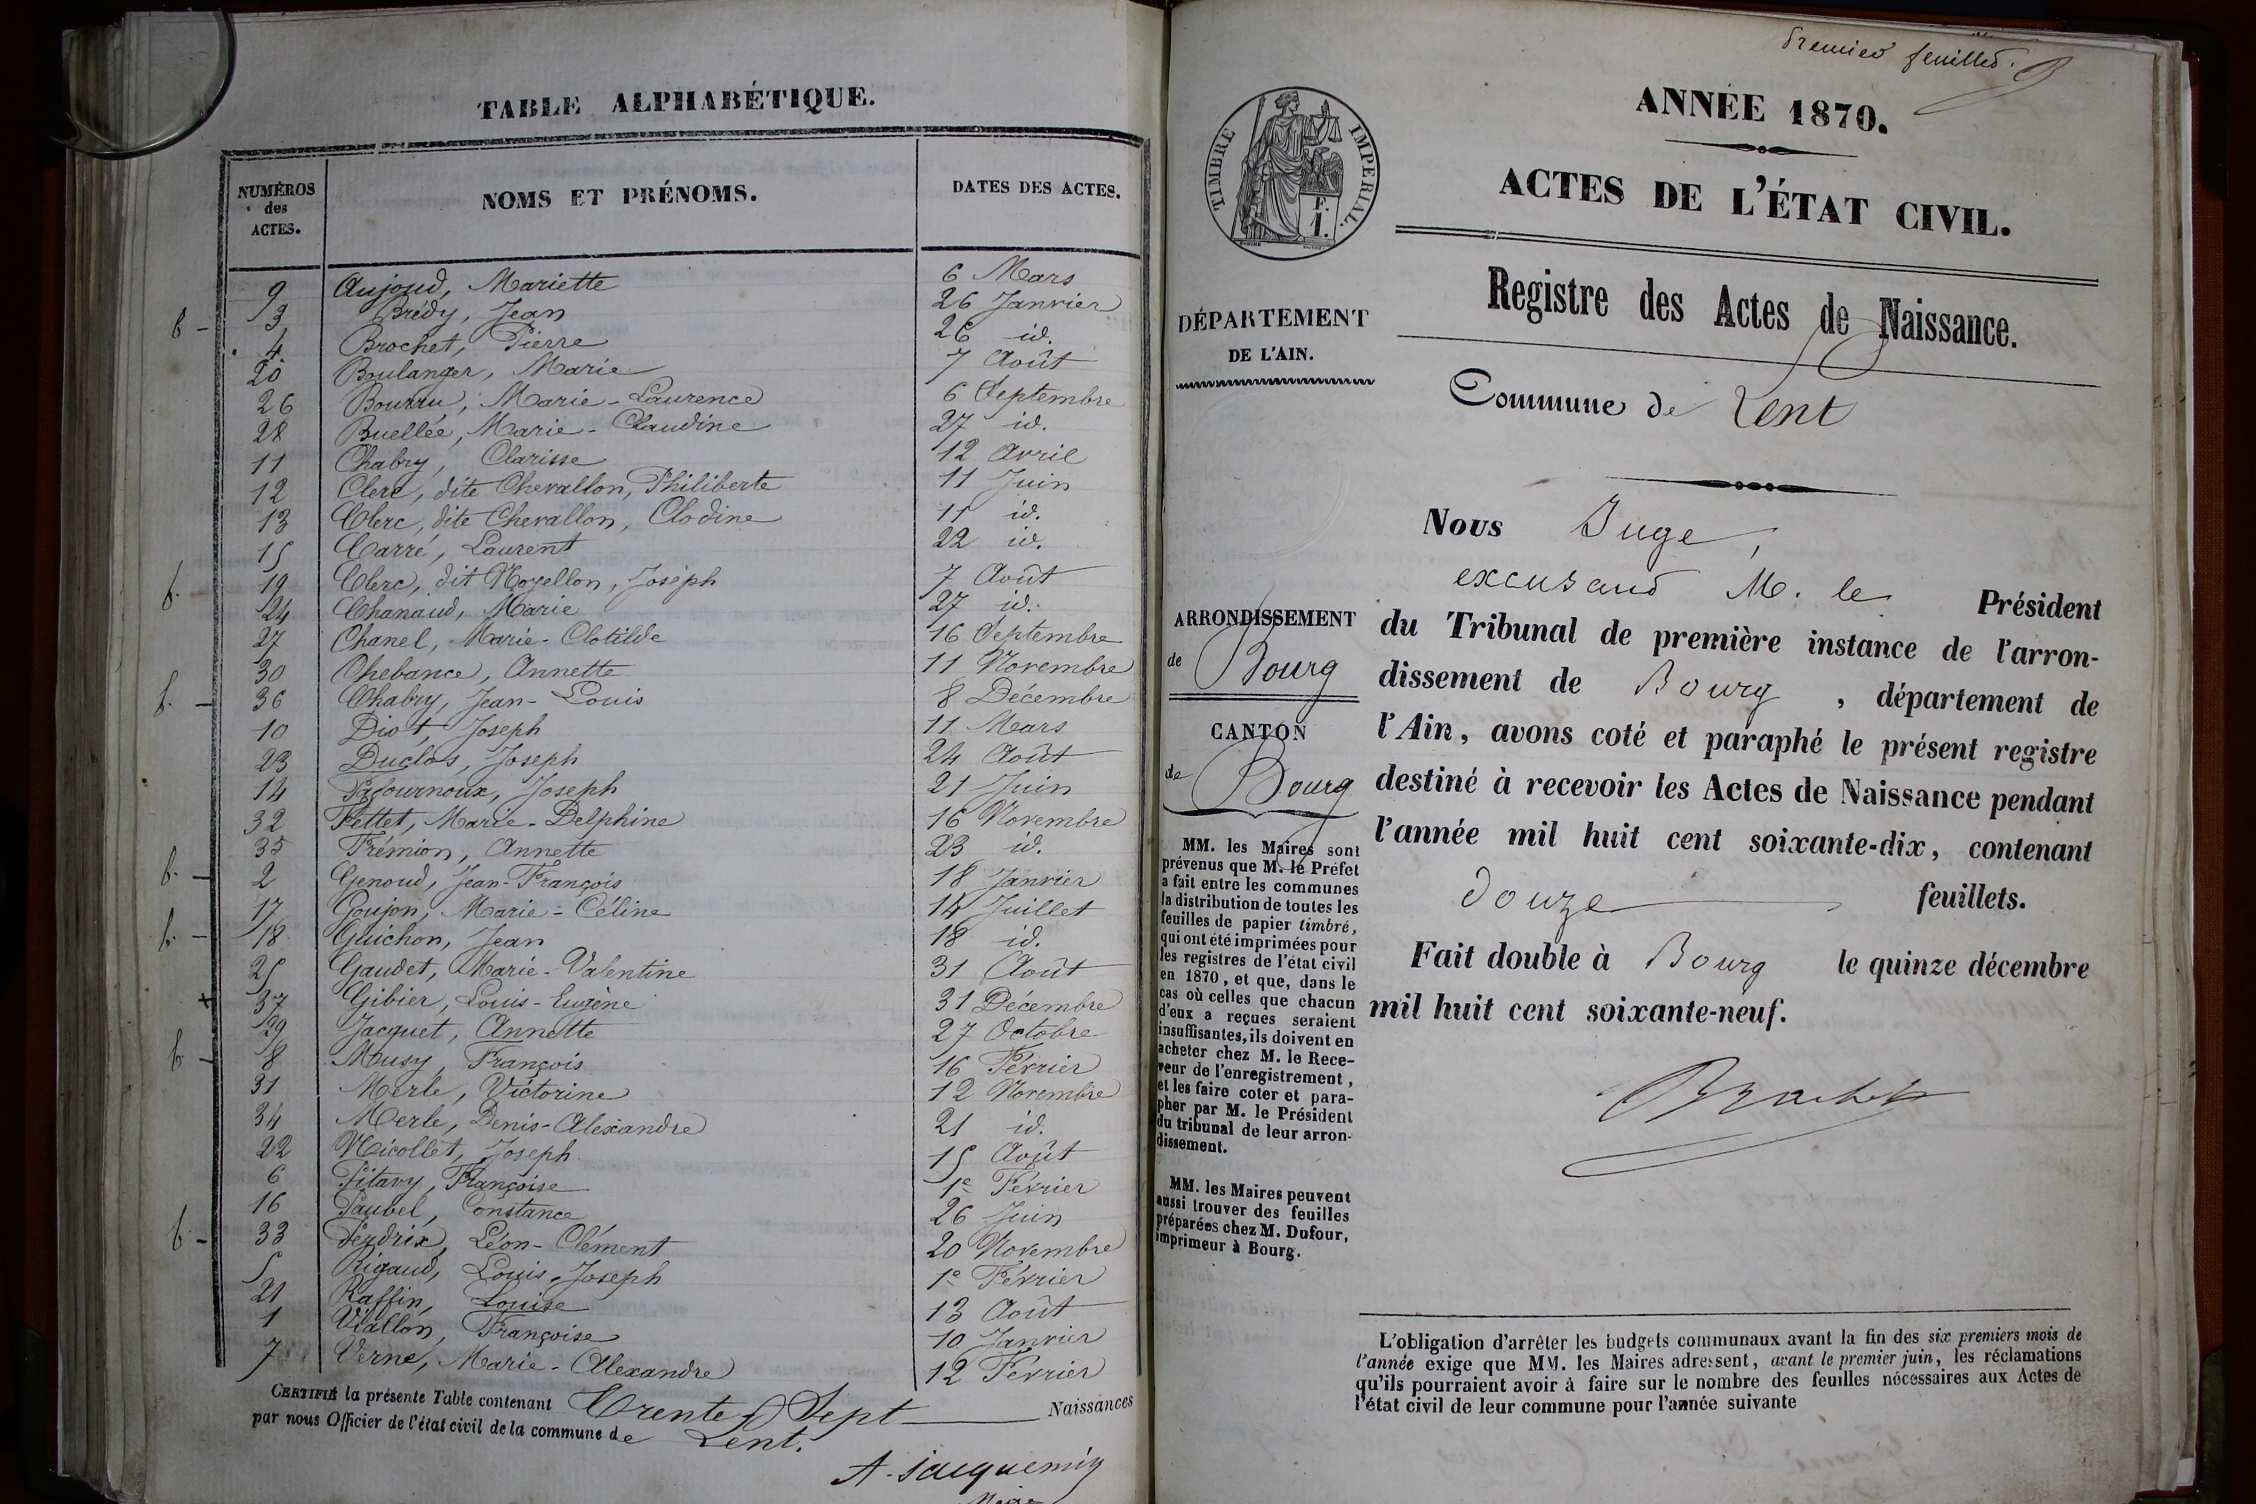 TABLE ALPHABÉTIQUE.
NUMÉROS des ACTES. NOMS ET PRÉNOMS. DATES DES ACTES.
9 Aujoud, Mariette 6 Mars
b - 3 Brédy, Jean 26 Janvier
4 Brochet, Pierre 26 id.
20 Boulanger, Marie 7 Août
26 Bourru, Marie-Laurence 6 Septembre
28 Buellée, Marie-Claudine 27 id.
11 Chabry, Clarisse 12 Avril
12 Clerc, dite Chevallon, Philiberte 11 Juin
13 Clerc, dite Chevallon, Clodine 11 id.
15 Carré, Laurent 22 id.
b. 19 Clerc, dit Noyellon, Joseph 7 Août
24 Chanaud, Marie 27 id.
27 Chanel, Marie-Clotilde 16 Septembre
30 Chebance, Annette 11 Novembre
b. - 36 Chabry, Jean-Louis 8 Décembre
10 Diot, Joseph 11 Mars
23 Duclos, Joseph 24 Août
14 Joseph 21 Juin
32 Fettet, Marie-Delphine 16 Novembre
35 Frémion, Annette 23 id.
b. - 2 Genoud, Jean-François 18 Janvier
17 Goujon, Marie-Céline 14 Juillet
b. - 18 Guichon, Jean 18 id.
25 Gaudet, Marie-Valentine 31 Août
x 37 Gibier, Louis-Eugène 31 Décembre
29 Jacquet, Annette 27 Octobre
b - 8 Musy, François 16 Février
31 Merle, Victorine 12 Novembre
34 Merle, Denis-Alexandre 21 id.
22 Nicollet, Joseph 15 Août
6 Pitavy, Françoise 1e Février
16 Paubel, Constance 26 Juin
b - 33 Perdrix, Léon-Clément 20 Novembre
5 Rigaud, Louis-Joseph 1e Février
21 Raffin, Louise 13 Août
1 Viallon, Françoise 10 Janvier
7 Verne, Marie-Alexandre 12 Février
CERTIFIÉ la présente Table contenant Trente Sept Naissances
par nous Officier de l'état civil de la commune de Lent.
A. Jacquemin
Maire
Premier feuillet.
TIMBRE IMPERIAL.
F.
1.
ANNÉE 1870.
ACTES DE L'ÉTAT CIVIL.
Registre des Actes de Naissance.
DÉPARTEMENT
DE L'AIN.
Commune de Lent
ARRONDISSEMENT
de Bourg
CANTON
de Bourg
MM. les Maires sont
prévenus que M. le Préfet
a fait entre les communes
la distribution de toutes les
feuilles de papier timbré,
qui ont été imprimées pour
les registres de l'état civil
en 1870, et que, dans le
cas où celles que chacun
d'eux a reçues seraient
insuffisantes, ils doivent en
acheter chez M. le Rece-
veur de l'enregistrement,
et les faire coter et para-
pher par M. le Président
du tribunal de leur arron-
dissement.
MM. les Maires peuvent
aussi trouver des feuilles
préparées chez M. Dufour,
imprimeur à Bourg.
Nous Juge,
excusant M. le Président
du Tribunal de première instance de l'arron-
dissement de Bourg, département de
l'Ain, avons coté et paraphé le présent registre
destiné à recevoir les Actes de Naissance pendant
l'année mil huit cent soixante-dix, contenant
douze feuillets.
Fait double à Bourg le quinze décembre
mil huit cent soixante-neuf.
L'obligation d'arrêter les budgets communaux avant la fin des six premiers mois de
l'année exige que MM. les Maires adressent, avant le premier juin, les réclamations
qu'ils pourraient avoir à faire sur le nombre des feuilles nécessaires aux Actes de
l'état civil de leur commune pour l'année suivante